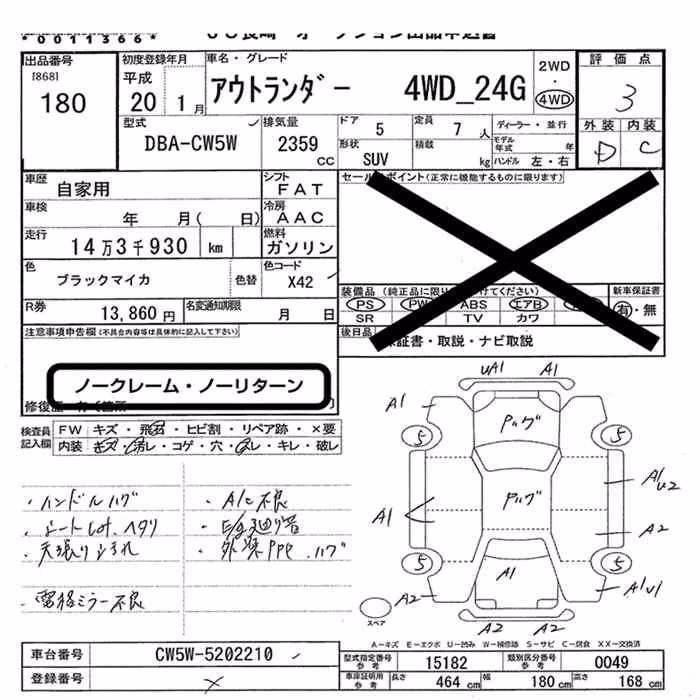 *0011366*
出品番号
[868]
180
初度登録年月
平成
20 1月
車名・グレード
アウトランダー 4WD_24G
2WD
・
4WD
評価点
3
外装 内装
D C
型式
DBA-CW5W
排気量
2359 CC
ドア 5
定員 7 人
ディーラー・並行
モデル年式 年
形状 SUV
積載 kg
ハンドル 左・右
車歴
自家用
シフト
FAT
セールスポイント(正常に機能するものに限ります)
車検
年 月( 日)
冷房
AAC
走行
14万3千930 km
燃料
ガソリン
色
ブラックマイカ
色替
色コード
X42
装備品 (純正品に限り てください)
PS PW ABS エアB
SR TV カワ
新車保証書
有・無
R券
13,860円
名変通知期限
月 日
後日品
保証書・取説・ナビ取説
注意事項申告欄(不具合内容等は具体的に記入して下さい)
ノークレーム・ノーリターン
検査員記入欄
FW キズ・飛石・ヒビ割・リペア跡・×要
内装 キズ・汚れ・コゲ・穴・スレ・キレ・破レ
・ハンドルハゲ ・A/C不良
・シート ヘタリ
・天張り
・外装 ハゲ
・電格ミラー不良
UA1 A1
A1
ハゲ
5 5
A1
ハゲ
A1 U2
A2
5 5
A1
A2
A1 U1
A2 A2
スペア
A-キズ E-エクボ U-凹み W-補修跡 S-サビ C-腐食 XX-交換済
車台番号 CW5W-5202210
登録番号
型式指定番号 参考 15182
類別区分番号 参考 0049
車庫証明用 参考 長さ 464 cm 幅 180 cm 高さ 168 cm